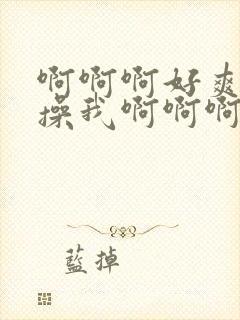 啊啊啊好爽
操我啊啊啊
藍掉